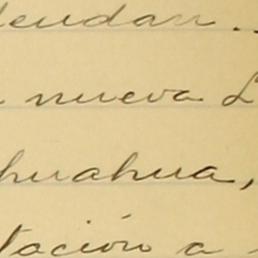 deudan ..
nueva L
huahua,
tación a